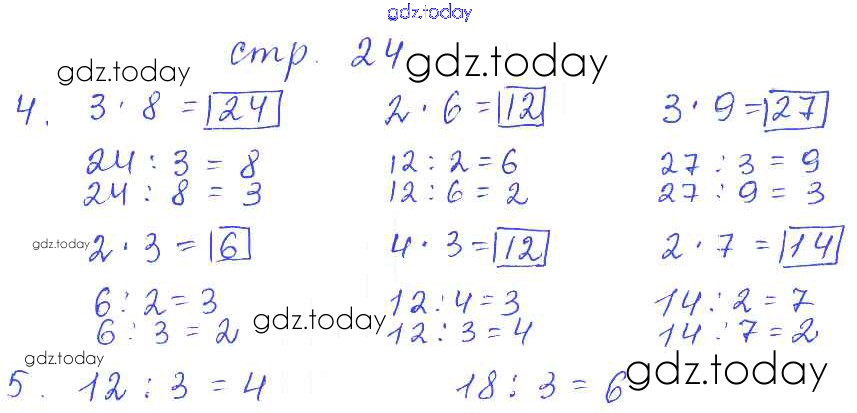 gdz.today
стр. 24
gdz.today gdz.today
4. 3 · 8 = 24 2 · 6 = 12 3 · 9 = 27
24 : 3 = 8 12 : 2 = 6 27 : 3 = 9
24 : 8 = 3 12 : 6 = 2 27 : 9 = 3
gdz.today
2 · 3 = 6 4 · 3 = 12 2 · 7 = 14
6 : 2 = 3 12 : 4 = 3 14 : 2 = 7
gdz.today
6 : 3 = 2 12 : 3 = 4 14 : 7 = 2
gdz.today gdz.today
5. 12 : 3 = 4 18 : 3 = 6